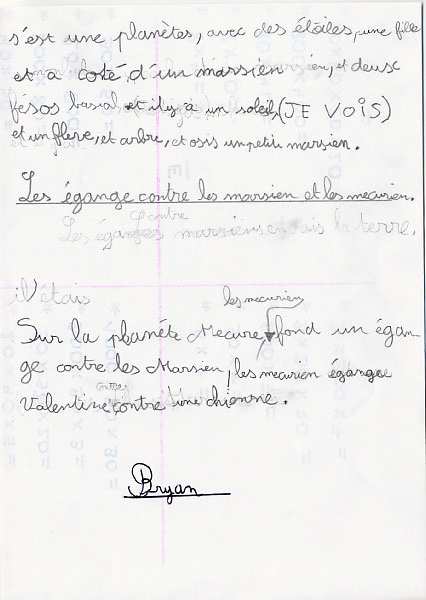 s'est une planètes, avec des étoiles, une fille
et a coté, d'un marsien, et deux
fésos basial et il y a un soleil, (JE VOIS)
et un flere, et arbre, et osis un petit marsien.
Les égange contre les marsien et les mecurien.
contre
Les éganges marsiens la terre.
il étais
les mecuriens
Sur la planéte Mecure, fond un égan-
ge contre les Marsien, les mecurien égange
contre
Valentine contre une chienne.
Bryan